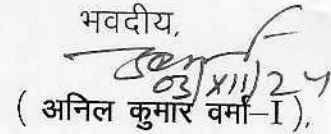 भवदीय,
03/XII/24
( अनिल कुमार वर्मा-I ),